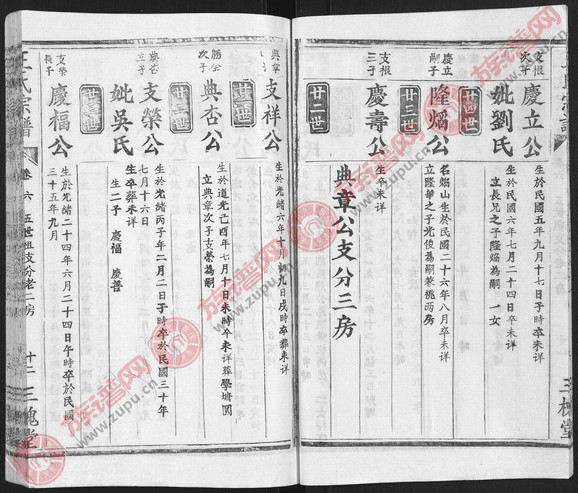 支根
次子
慶立公
生於民國五年九月十七日子時卒未詳
妣劉氏
生於民國六年七月二十四日卒未詳
立長兄之子隆焰為嗣 一女
廿四世
慶立
嗣子
隆焰公
名焰山生於民國二十六年八月卒未詳
立隆華之子光俊為嗣兼祧两房
廿三世
支根
三子
慶壽公
生卒未詳
廿二世
典章公支分三房
典章
支祥公
生於光緒六年十月初九日戌時卒葬未詳
勝公
次子
典杏公
生於道光己酉年七月十日未時卒未詳葬學塘園
立典章次子支榮為嗣
典杏
立子
支榮公
生於光緒丙子年二月二日子時卒於民國三十年
七月十六日
妣吳氏
生卒葬未詳
生二子 慶福 慶普
支榮
長子
慶福公
生於光緒二十四年六月二十四日午時卒於民國
三十五年九月
王氏宗譜
卷六
五世祖支分老二房
十二
三槐堂
族谱网
www.zupu.cn